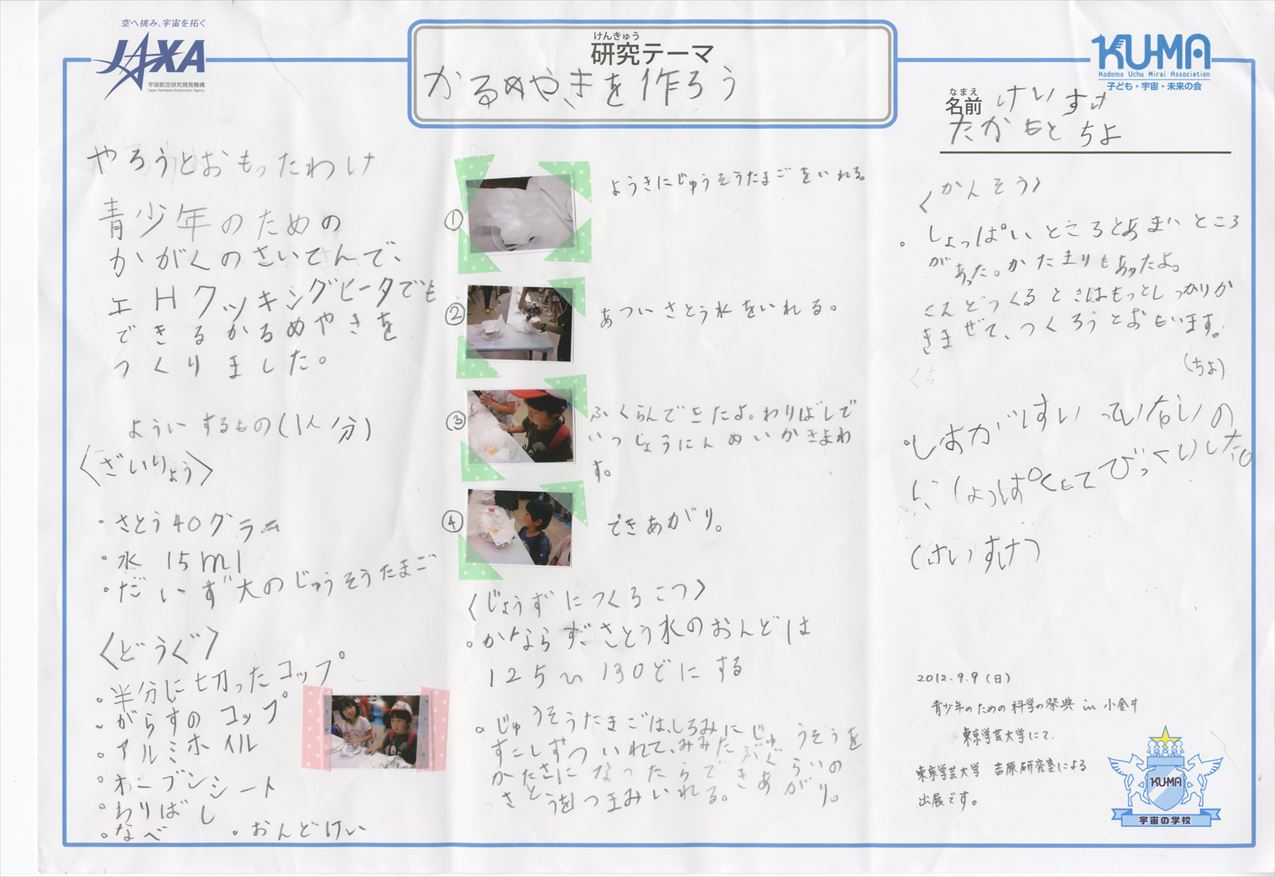 空へ挑み、宇宙を拓く
JAXA
宇宙航空研究開発機構
Japan Aerospace Exploration Agency
けんきゅう
研究テーマ
かるめやきを作ろう
KU-MA
Kodomo Uchu Mirai Association
子ども・宇宙・未来の会
なまえ
名前 けいすけ
たかもと ちよ
やろうとおもったわけ
青少年のための
かがくのさいてんで、
エHクッキングヒータでも
できるかるめやきを
つくりました。
よういするもの(1人分)
〈ざいりょう〉
・さとう40グラム
・水 15ml
・だいず大のじゅうそうたまご
〈どうぐ〉
・半分に切ったコップ
・がらすのコップ
・アルミホイル
・オーブンシート
・わりばし
・なべ ・おんどけい
① ようきにじゅうそうたまごをいれる。
② あついさとう水をいれる。
③ ふくらんできたよ。わりばしで
いっしょうけんめいかきまわ
す。
④ できあがり。
〈じょうずにつくるこつ〉
・かならず、さとう水のおんどは
125〜130どにする
・じゅうそうたまごは、しろみにじゅうそうを
すこしずついれて、みみたぶくらいの
かたさになったらできあがり。
さとうをつまみいれる。
〈かんそう〉
・しょっぱいところとあまいところ
があった。かたまりもあったよ。
こんどつくるときはもっとしっかりか
きまぜて、つくろうとおもいます。
(ちよ)
(けいすけ)
2012.9.9(日)
青少年のための科学の祭典 in 小金井
東京学芸大学にて.
東京学芸大学 吉原研究室による
出展です。
KU-MA
宇宙の学校